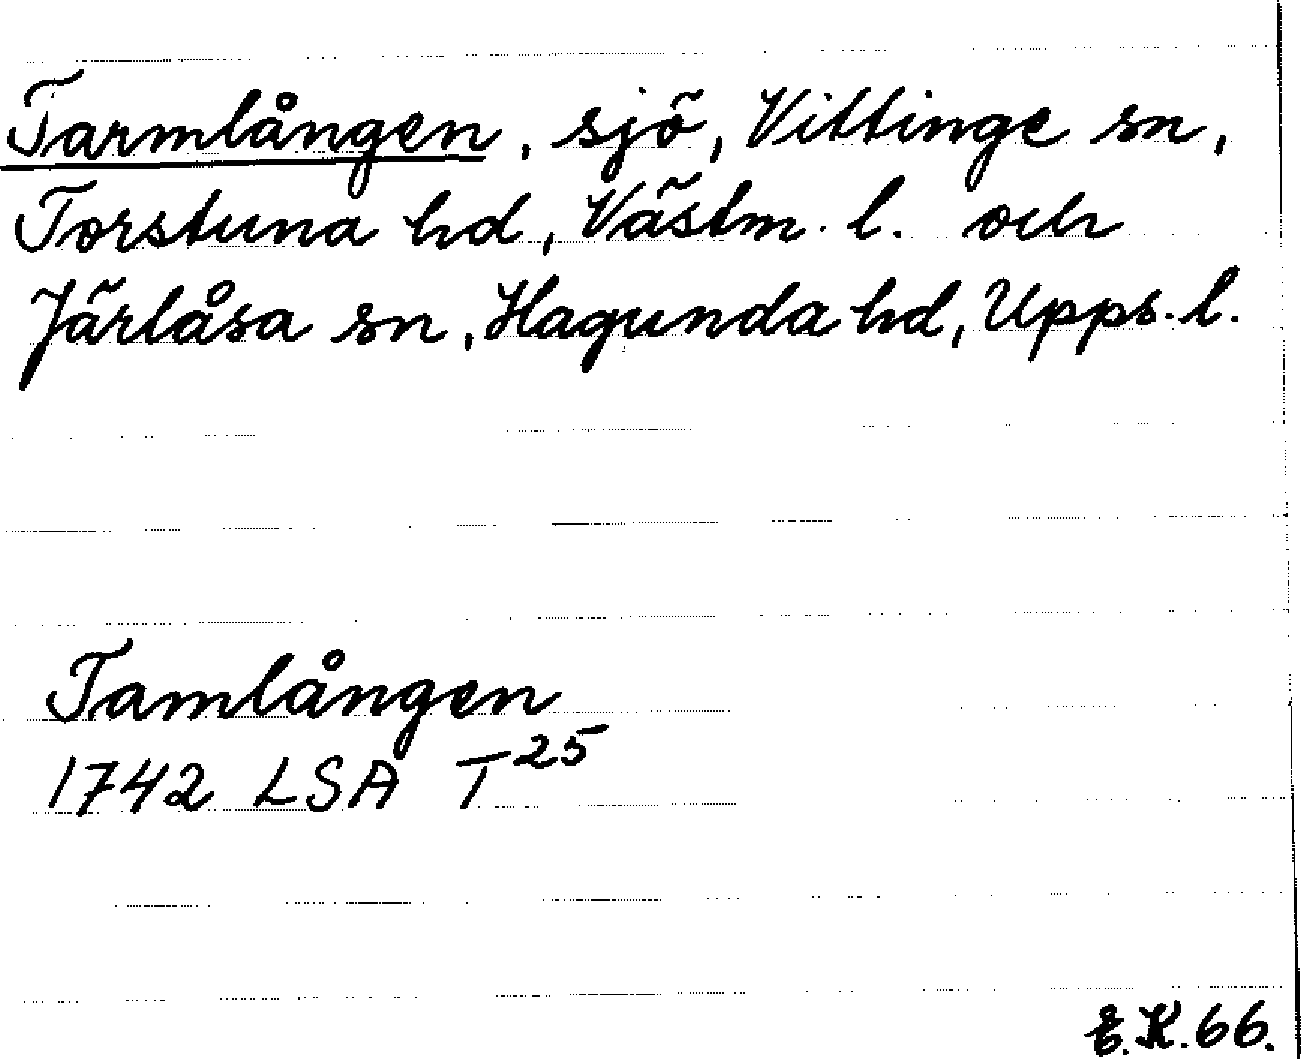 Tarmlången, sjö, Vittinge sn,
Torstuna hd, Västm. l. och
Järlåsa sn, Hagunda hd, Upps. l.
Tamlången
1742 LSA T25
E.K.66.